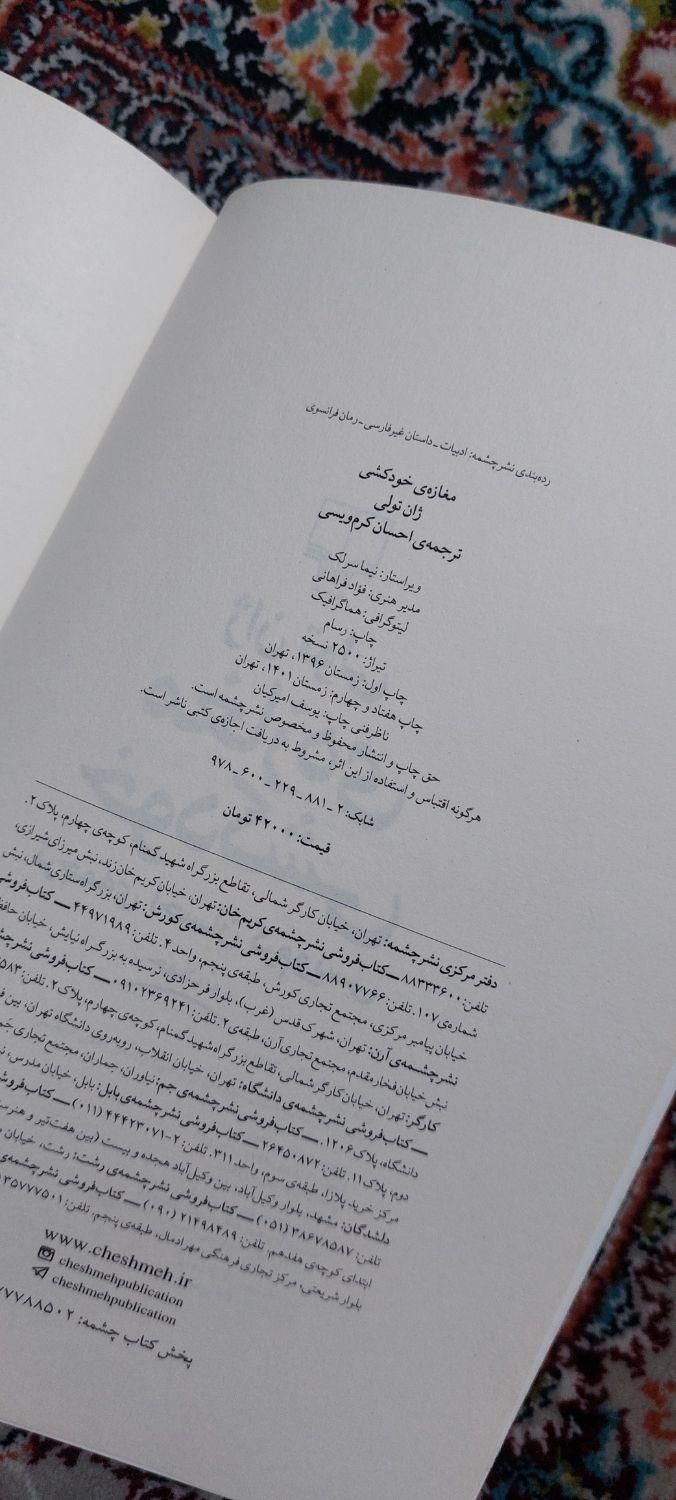 رده‌بندی نشرچشمه: ادبیات - داستان غیرفارسی - رمان فرانسوی
مغازه‌ی خودکشی
ژان تولی
ترجمه‌ی احسان کرم‌ویسی
ویراستار: نیما سرلک
مدیر هنری: فؤاد فراهانی
لیتوگرافی: هماگرافیک
چاپ: رسام
تیراژ: ۲۵۰۰ نسخه
چاپ اول: زمستان ۱۳۹۶، تهران
چاپ هفتاد و چهارم: زمستان ۱۴۰۱، تهران
ناظر فنی چاپ: یوسف امیرکیان
حق چاپ و انتشار محفوظ و مخصوص نشرچشمه است.
هرگونه اقتباس و استفاده از این اثر، مشروط به دریافت اجازه‌ی کتبی ناشر است.
شابک: ۲-۸۸۱-۲۲۹-۶۰۰-۹۷۸
قیمت: ۴۲۰۰۰ تومان
دفتر مرکزی نشرچشمه: تهران، خیابان کارگر شمالی، تقاطع بزرگراه شهید گمنام، کوچه‌ی چهارم، پلاک ۲.
تلفن: ۸۸۳۳۳۶۰۰ — کتاب‌فروشی نشرچشمه‌ی کریم‌خان: تهران، خیابان کریم‌خان زند، نبش میرزای شیرازی،
شماره‌ی ۱۰۷. تلفن: ۸۸۹۰۷۷۶۶ — کتاب‌فروشی نشرچشمه‌ی کورش: تهران، بزرگراه ستاری شمال، نبش
خیابان پیامبر مرکزی، مجتمع تجاری کورش، طبقه‌ی پنجم، واحد ۴. تلفن: ۴۴۹۷۱۹۸۹ — کتاب‌فروشی
نشرچشمه‌ی آرن: تهران، شهرک قدس (غرب)، بلوار فرحزادی، نرسیده به بزرگراه نیایش، خیابان حافظ
نبش خیابان فخارمقدم، مجتمع تجاری آرن، طبقه‌ی ۲. تلفن: ۰۹۱۰۲۳۶۹۲۴۱ — کتاب‌فروشی نشرچشمه
کارگر: تهران، خیابان کارگر شمالی، تقاطع بزرگراه شهید گمنام، کوچه‌ی چهارم، پلاک ۲. تلفن:
— کتاب‌فروشی نشرچشمه‌ی دانشگاه: تهران، خیابان انقلاب، روبه‌روی دانشگاه تهران، بین
دانشگاه، پلاک ۱۲۰۶. — کتاب‌فروشی نشرچشمه‌ی جم: نیاوران، جماران، مجتمع تجاری
دوم، پلاک ۱۱. تلفن: ۲۶۴۵۰۸۷۲ — کتاب‌فروشی نشرچشمه‌ی بابل: بابل، خیابان مدرس،
مرکز خرید پلازا، طبقه‌ی سوم، واحد ۳۱۱. تلفن: ۲-۴۴۴۲۳۰۷۱ (۰۱۱) — کتاب‌فروشی
دلشدگان: مشهد، بلوار وکیل‌آباد، بین وکیل‌آباد هجده و بیست (بین هفت‌تیر و
تلفن: ۳۸۶۷۸۵۸۷ (۰۵۱) — کتاب‌فروشی نشرچشمه‌ی رشت: رشت، خیابان
ابتدای کوچه‌ی هفدهم. تلفن: ۲۱۴۹۸۴۸۹ (۰۹۰) — کتاب‌فروشی نشرچشمه‌ی
بلوار شریعتی، مرکز تجاری فرهنگی مهرادمال، طبقه‌ی پنجم. تلفن:
www.cheshmeh.ir
cheshmehpublication
cheshmehpublication
پخش کتاب چشمه: ۷۷۷۸۸۵۰۲